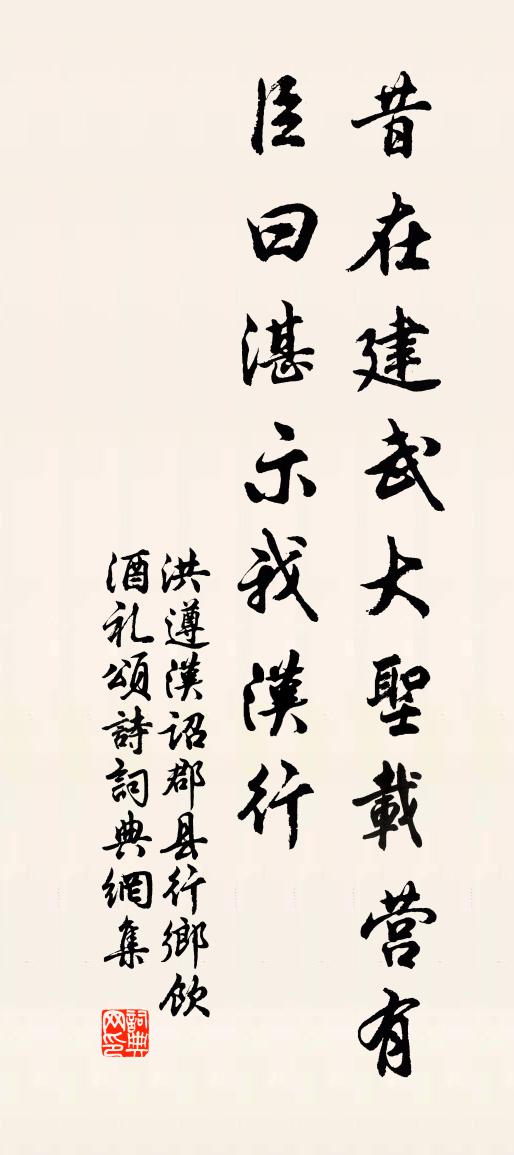 昔在建武大聖載营有
臣曰湛示我漢行
洪遵漢诏郡县行鄉飲
酒礼頌詩詞典網集
詞典
网印